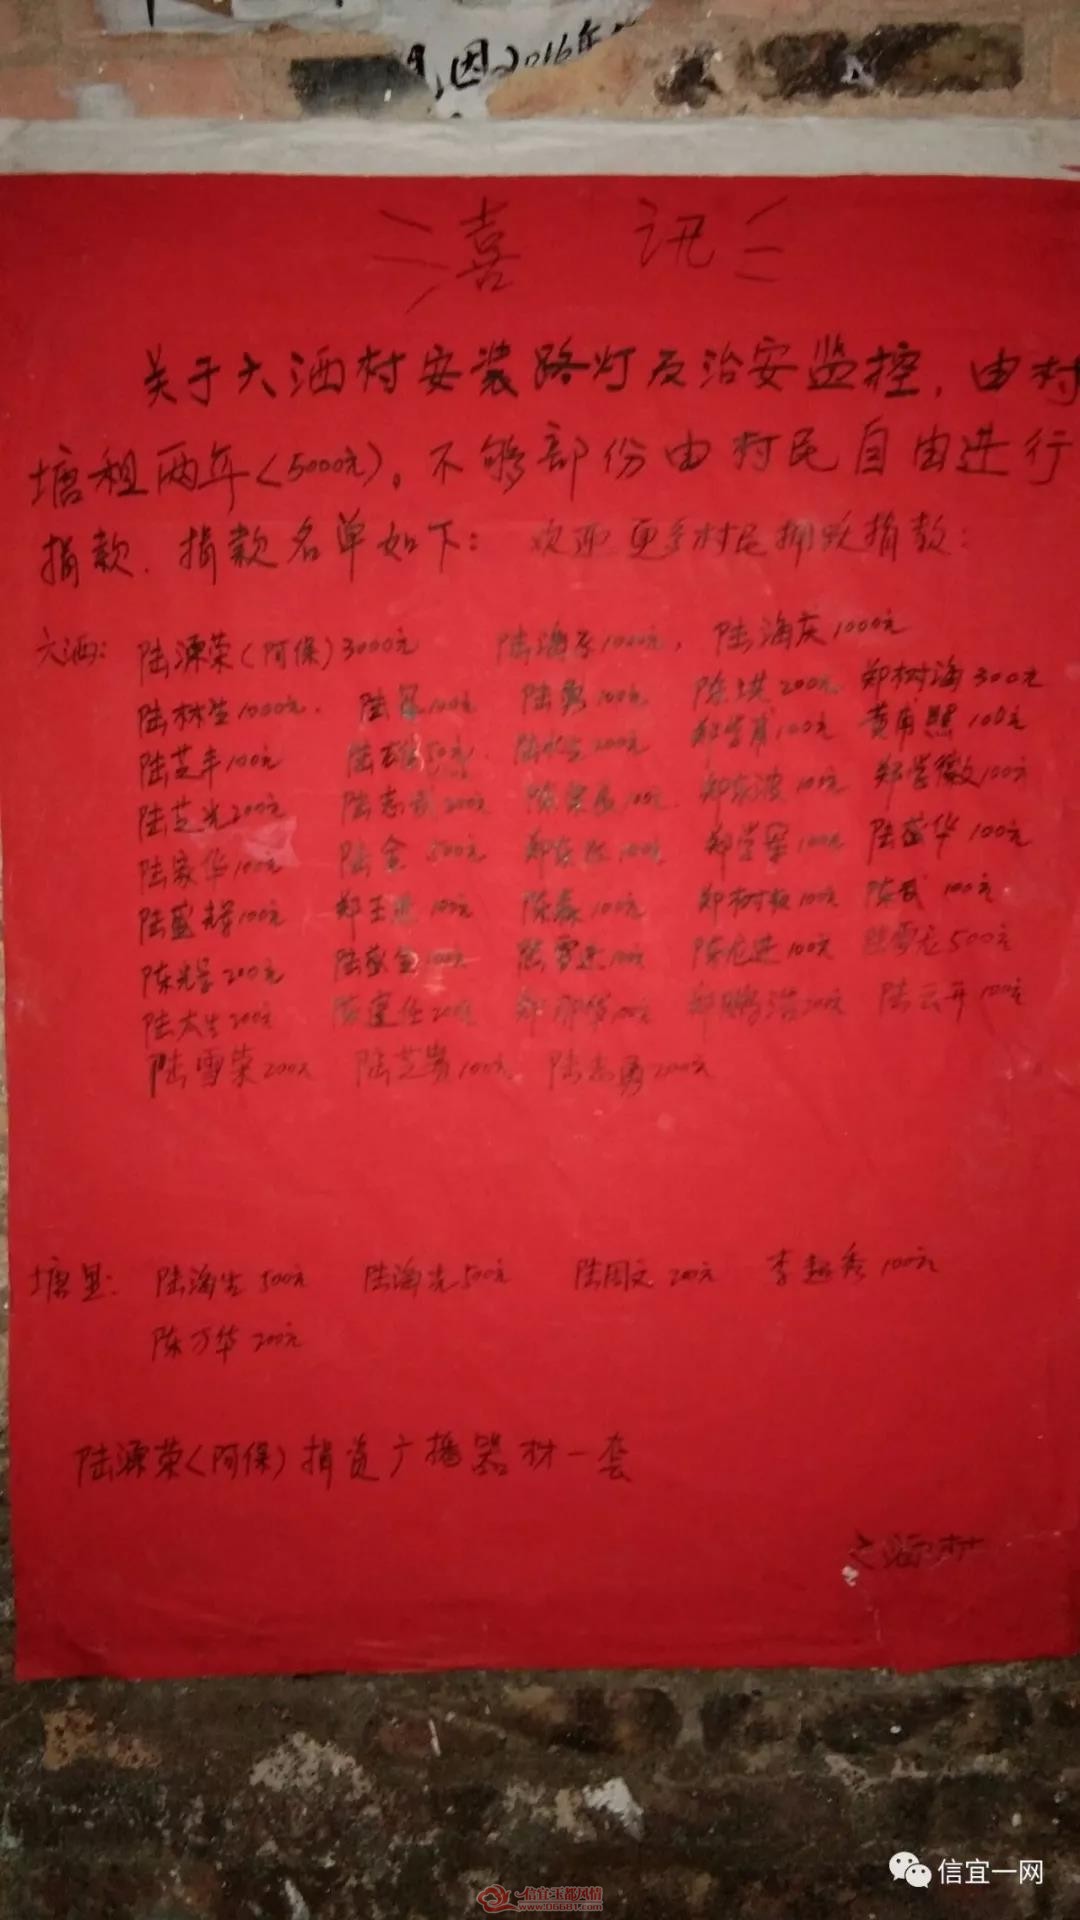 因2016年
喜 讯
关于六洒村安装路灯及治安监控，由村
塘租两年(5000元)。不够部份由村民自由进行
捐款．捐款名单如下：欢迎更多村民踊跃捐款：
六洒：陆源荣(阿保)3000元 陆海 1000元，陆海庆1000元
陆林生1000元． 陆 100元 陆勇100元 陈 200元 郑树海300元
陆芝丰100元 陆 50元． 陆水生200元 郑 100元 黄甫照100元
陆芝光200元 陆志武200元 陈 100元． 郑东波100元 郑学徽100元
陆家华100元 陆金500元 郑东 100元 郑学军100元 陆盛华100元
陆盛 100元 郑王进100元 陈森100元 郑树 100元 陈武100元
陈光 200元 陆盛金100元 陆雪进100元 陈龙进100元 陆雪光500元
陆大生200元 陈 任200元 郑 华100元 郑鹏浩200元 陆云开100元
陆雪荣200元 陆芝 100元 陆志勇200元
塘垦：陆海生500元 陆海光500元 陆周文200元 李超秀100元
陈万华200元
陆源荣(阿保)捐资广播器材一套
六洒村
信宜一网
信宜玉都风情
www.06681.com